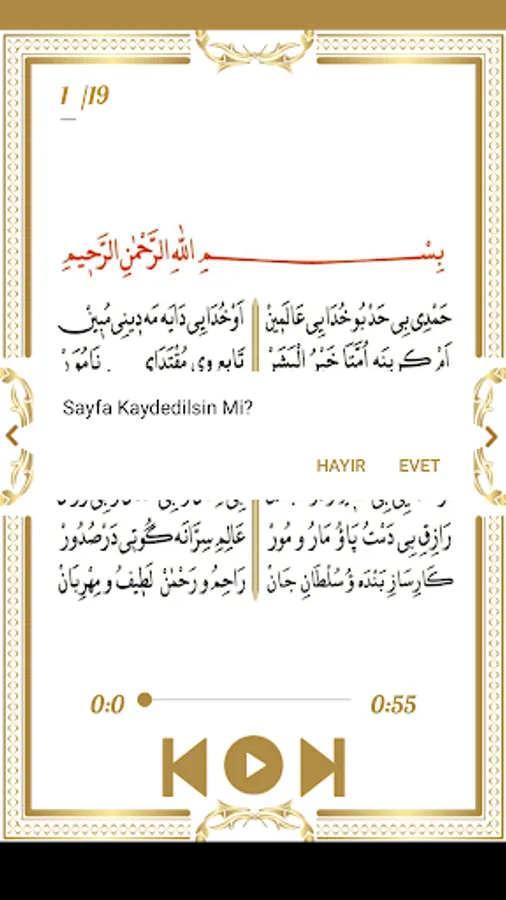 1 /19
بِسْمِ اللّٰهِ الرَّحْمٰنِ الرَّحٖيمِ
حَمْدِى بِى حَدْ بُو خُدَايِى عَالَمٖينْ اَوْ خُدَايِى دَايَه مَه دٖينِى مُبٖينْ
اَمْ كِرِينَه اُمَّتَا خَيْرُ الْبَشَرْ تَابِعِ وِى مُقْتَدَاىِ نَامُوَرْ
Sayfa Kaydedilsin Mi?
HAYIR EVET
رَازِقِ بِى دَسْتُ پَاؤُ مَارُ و مُورْ عَالِمِ سِرَّانَه گُوتِى دَرْ صُدُورْ
كَارِسَازِ بَنْدَه ؤُ سُلْطَانِ جَانْ رَاحِمُ و رَحْمٰنْ لَطٖيفُ و مِهْرِبَانْ
0:0 0:55